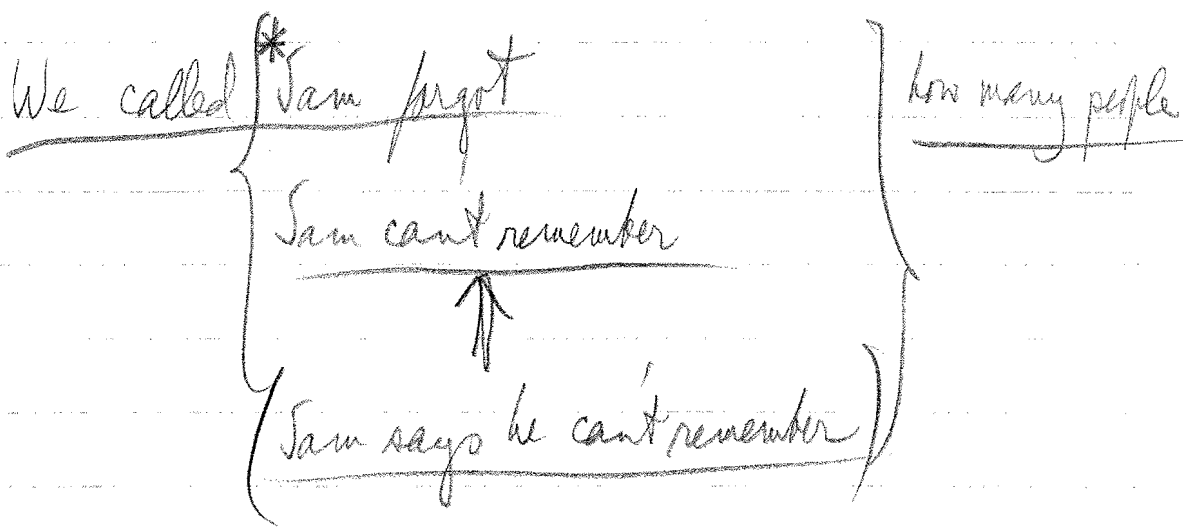 We called *Sam forgot how many people
Sam can't remember
(Sam says he can't remember)